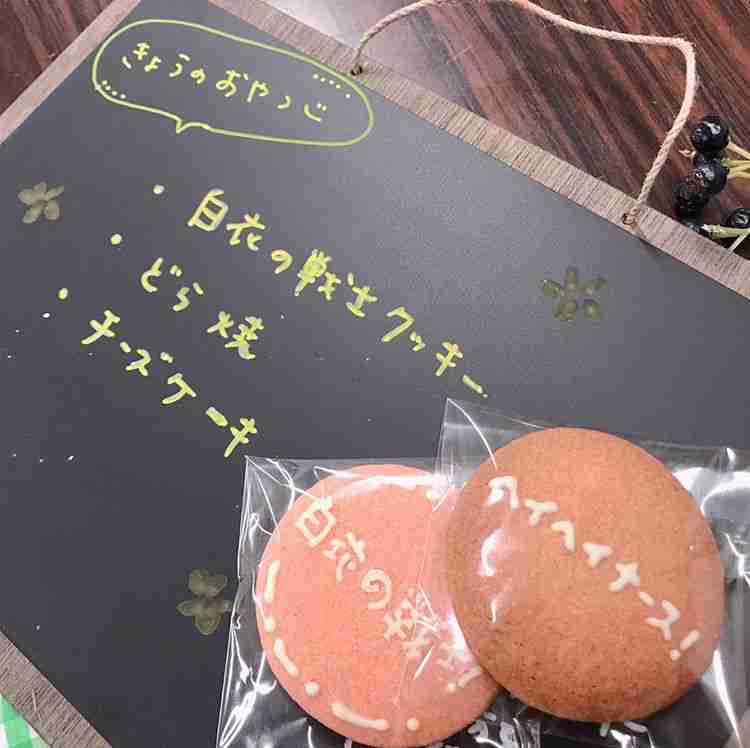 きょうのおやつ
・白衣の戦士クッキー
・どら焼
・チーズケーキ
白衣の戦士!
ヘイヘイナース!